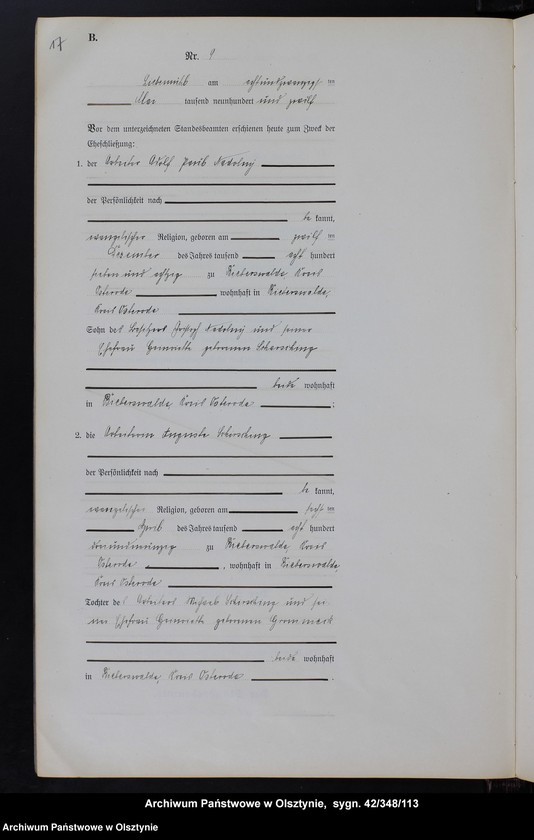 17
B.
Nr. 9
am achtundzwanzigsten
Mai tausend neunhundert und zwölf
Vor dem unterzeichneten Standesbeamten erschienen heute zum Zweck der
Eheschließung:
1. der Arbeiter Adolf Nadolny
der Persönlichkeit nach
be kannt,
evangelischer Religion, geboren am zwölf ten
Dezember des Jahres tausend acht hundert
sieben und achtzig zu Bieberswalde Kreis
Osterode wohnhaft in Bieberswalde,
Kreis Osterode
Sohn des Nadolny und seiner
Ehefrau Henriette geborenen
beide wohnhaft
in Bieberswalde, Kreis Osterode ;
2. die Arbeiterin Auguste
der Persönlichkeit nach
be kannt,
evangelischer Religion, geboren am sechs ten
April des Jahres tausend acht hundert
neunzig zu Bieberswalde, Kreis
Osterode , wohnhaft in Bieberswalde,
Kreis Osterode
Tochter des Arbeiters Michael und sei-
ner Ehefrau Henriette geborenen
beide wohnhaft
in Bieberswalde, Kreis Osterode .
Archiwum Państwowe w Olsztynie, sygn. 42/348/113
Archiwum Państwowe w Olsztynie